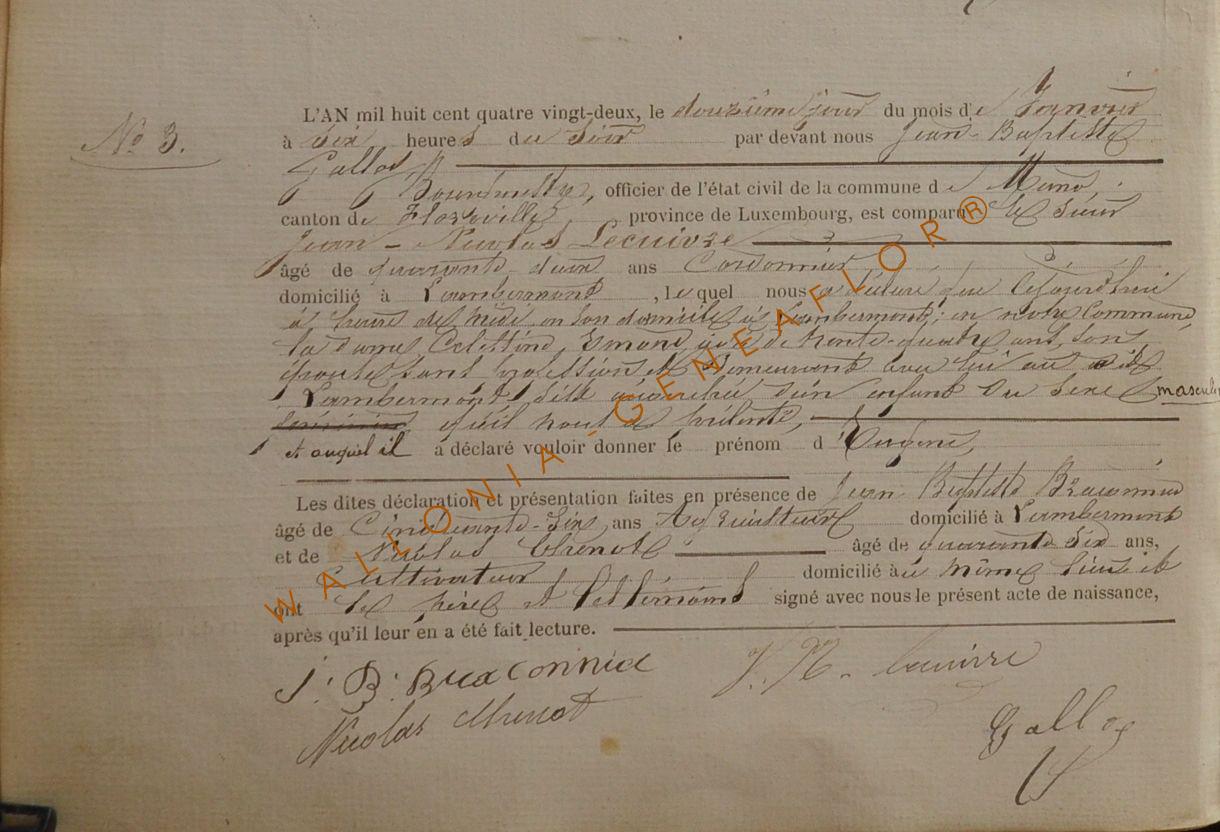 N° 3.
L'AN mil huit cent quatre vingt-deux, le douzième jour du mois de Janvier
à six heures du soir par devant nous Jean-Baptiste
Gallos,
Bourgmestre, officier de l'état civil de la commune de Muno,
canton de Florenville, province de Luxembourg, est comparu le sieur
Jean-Nicolas Lecuivre
âgé de quarante-deux ans Cordonnier
domicilié à Lambermont, lequel nous a déclaré que cejourd'hui
à heure de midi, en son domicile à Lambermont, en notre Commune,
la dame Célestine, âgée de trente-quatre ans, son
épouse sans profession et demeurant avec lui au dit
Lambermont s'est accouchée d'un enfant du sexe masculin
féminin qu'il nous a présenté,
et auquel il a déclaré vouloir donner le prénom d'Eugène,
Les dites déclaration et présentation faites en présence de Jean Baptiste Braconnier
âgé de Cinquante-six ans Agriculteur domicilié à Lambermont
et de Nicolas Thenot âgé de quarante six ans,
Cultivateur domicilié au même lieu et
ont le père et les témoins signé avec nous le présent acte de naissance,
après qu'il leur en a été fait lecture.
J. B. Braconnier
J. N. Lecuivre
Nicolas Thenot
Gallos
WALLONIA-GENEAFLOR®